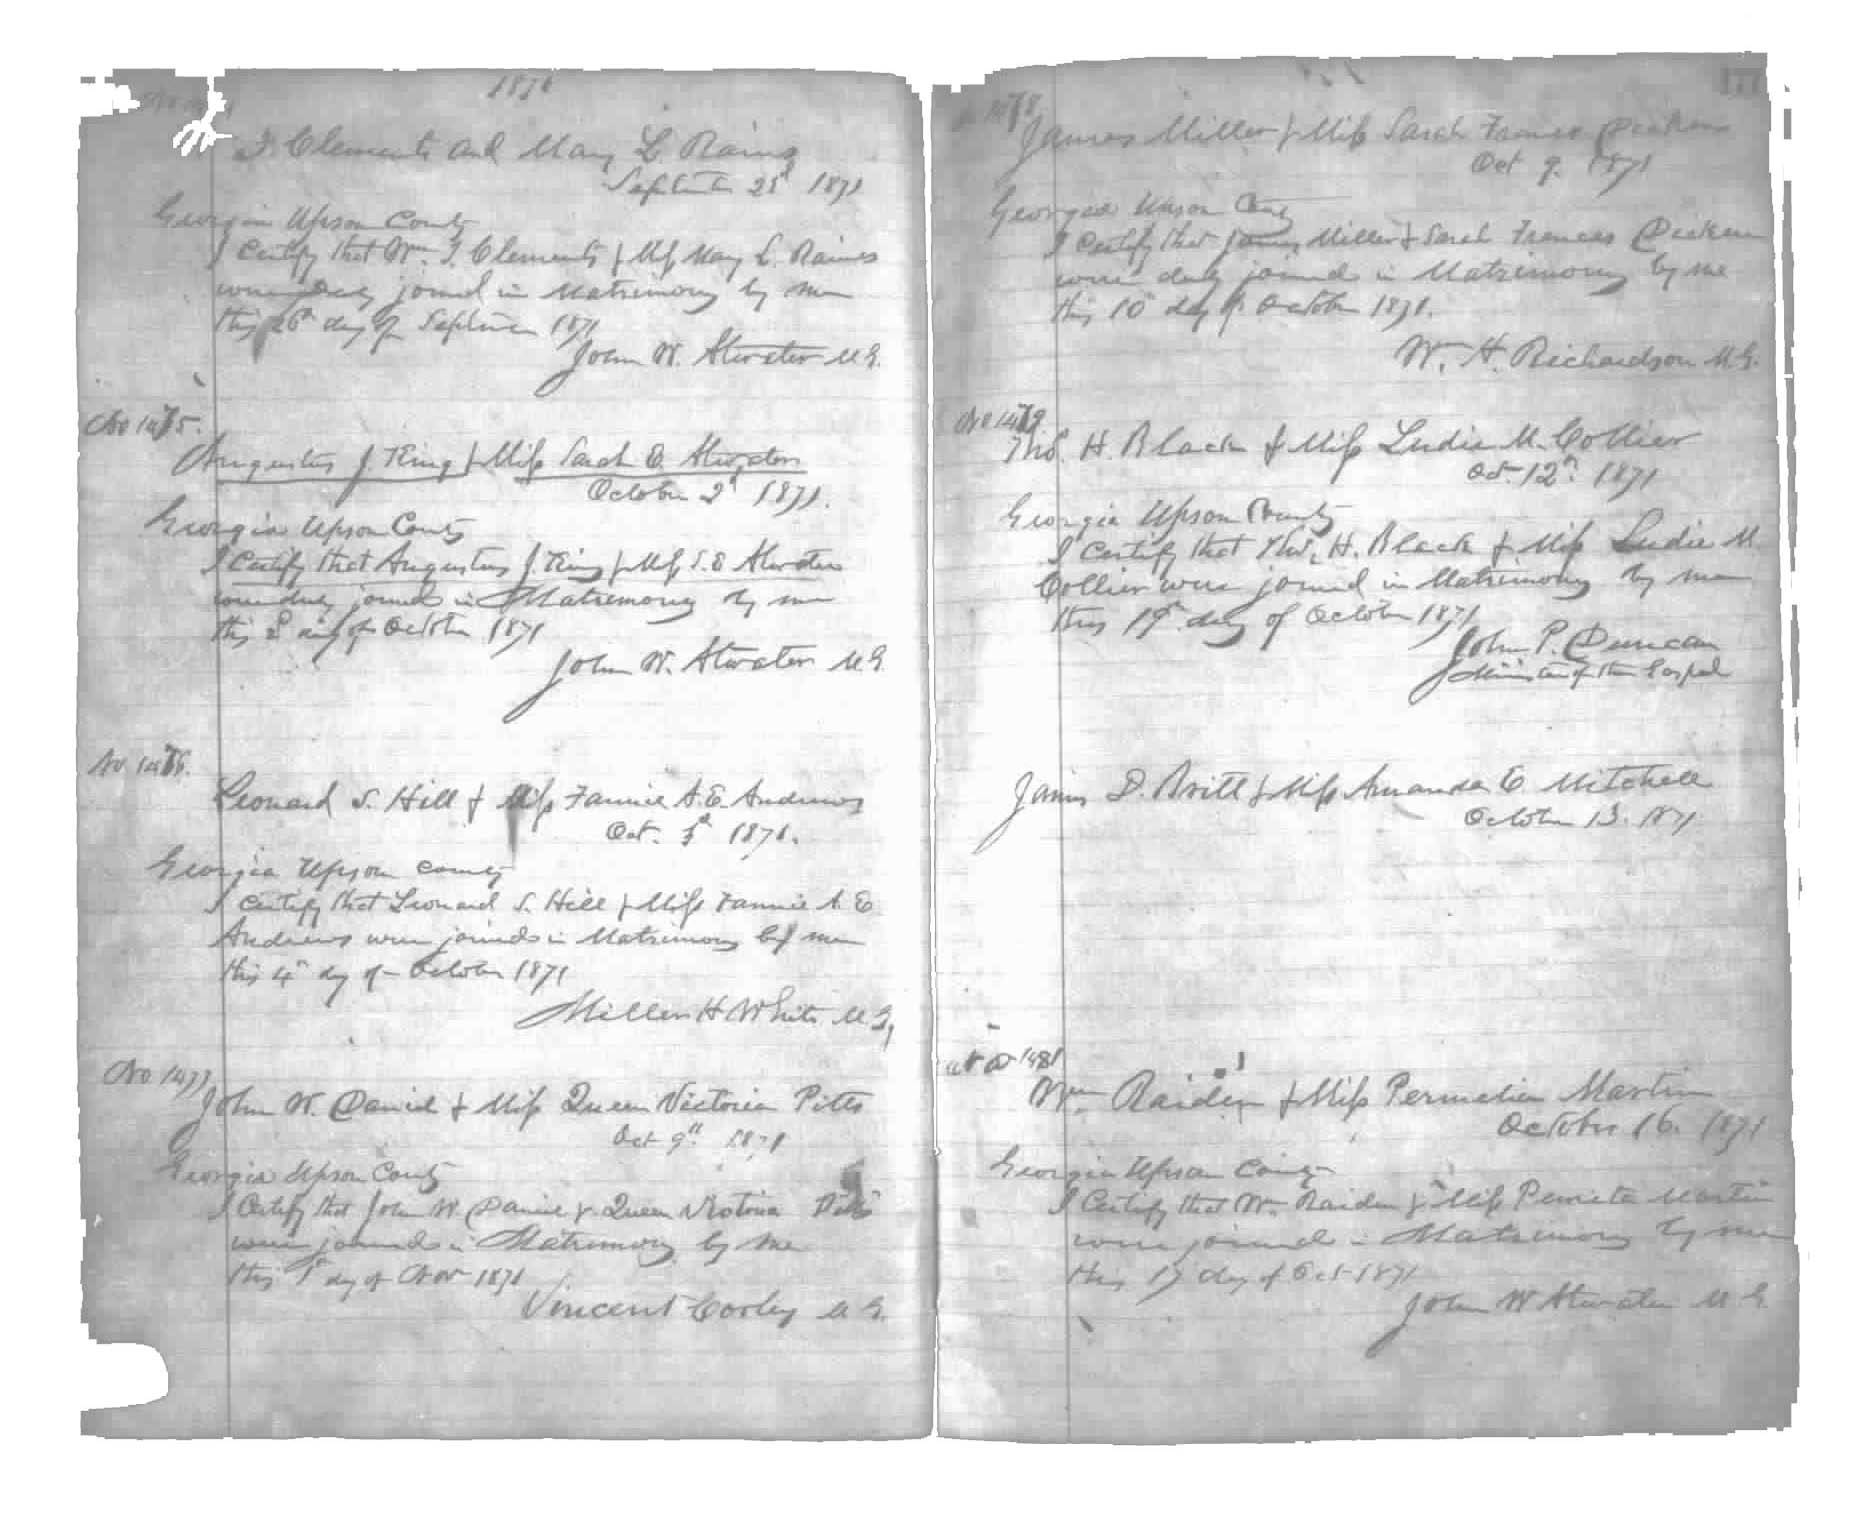 1871
J. Clements and Mary L. Raines
September 25th 1871
Georgia Upson County
I Certify that Wm. J. Clements & Miss Mary L. Raines
were duly joined in Matrimony by me
this 26th day of September 1871
John W. Atwater M.G.
No 1475.
Augustus J. King & Miss Sarah E. Atwater
October 2d 1871.
Georgia Upson County
I Certify that Augustus J. King & Miss S. E Atwater
were duly joined in Matrimony by me
this day of October 1871
John W. Atwater M.G.
No. 1476.
Leonard S. Hill & Miss Fannie A. E. Andrews
Oct. 3d 1871.
Georgia Upson County
I Certify that Leonard S. Hill & Miss Fannie A. E
Andrews were joined in Matrimony by me
this 4th day of October 1871
Miller H White M.G,
No 1477
John W. Daniel & Miss Queen Victoria Pitts
Oct 9th 1871
Georgia Upson County
I Certify that John W. Daniel & Queen Victoria Pitts
were joined in Matrimony by me
this 1st day of Nov 1871
Vincent Corley M.G.
177
1478
James Miller & Miss Sarah Frances
Oct 9. 1871
Georgia Upson County
I Certify that James Miller & Sarah Frances
were duly joined in Matrimony by me
this 10th day of October 1871.
W. H. Richardson M.G.
No 1479
Thos. H. Black & Miss Ludie M. Collier
Oct. 12th 1871
Georgia Upson County
I Certify that Thos. H. Black & Miss Ludie M.
Collier were joined in Matrimony by me
this 19th day of October 1871
John P. Duncan
Minister of the Gospel
James D. Britt & Miss Amanda E Mitchell
October 13. 1871
1481
Wm Raiden & Miss Permelia Martin
October 16. 1871
Georgia Upson County
I Certify that Wm. Raiden & Miss Martin
were joined in Matrimony by me
this 17 day of Oct 1871
John W Atwater M.G.